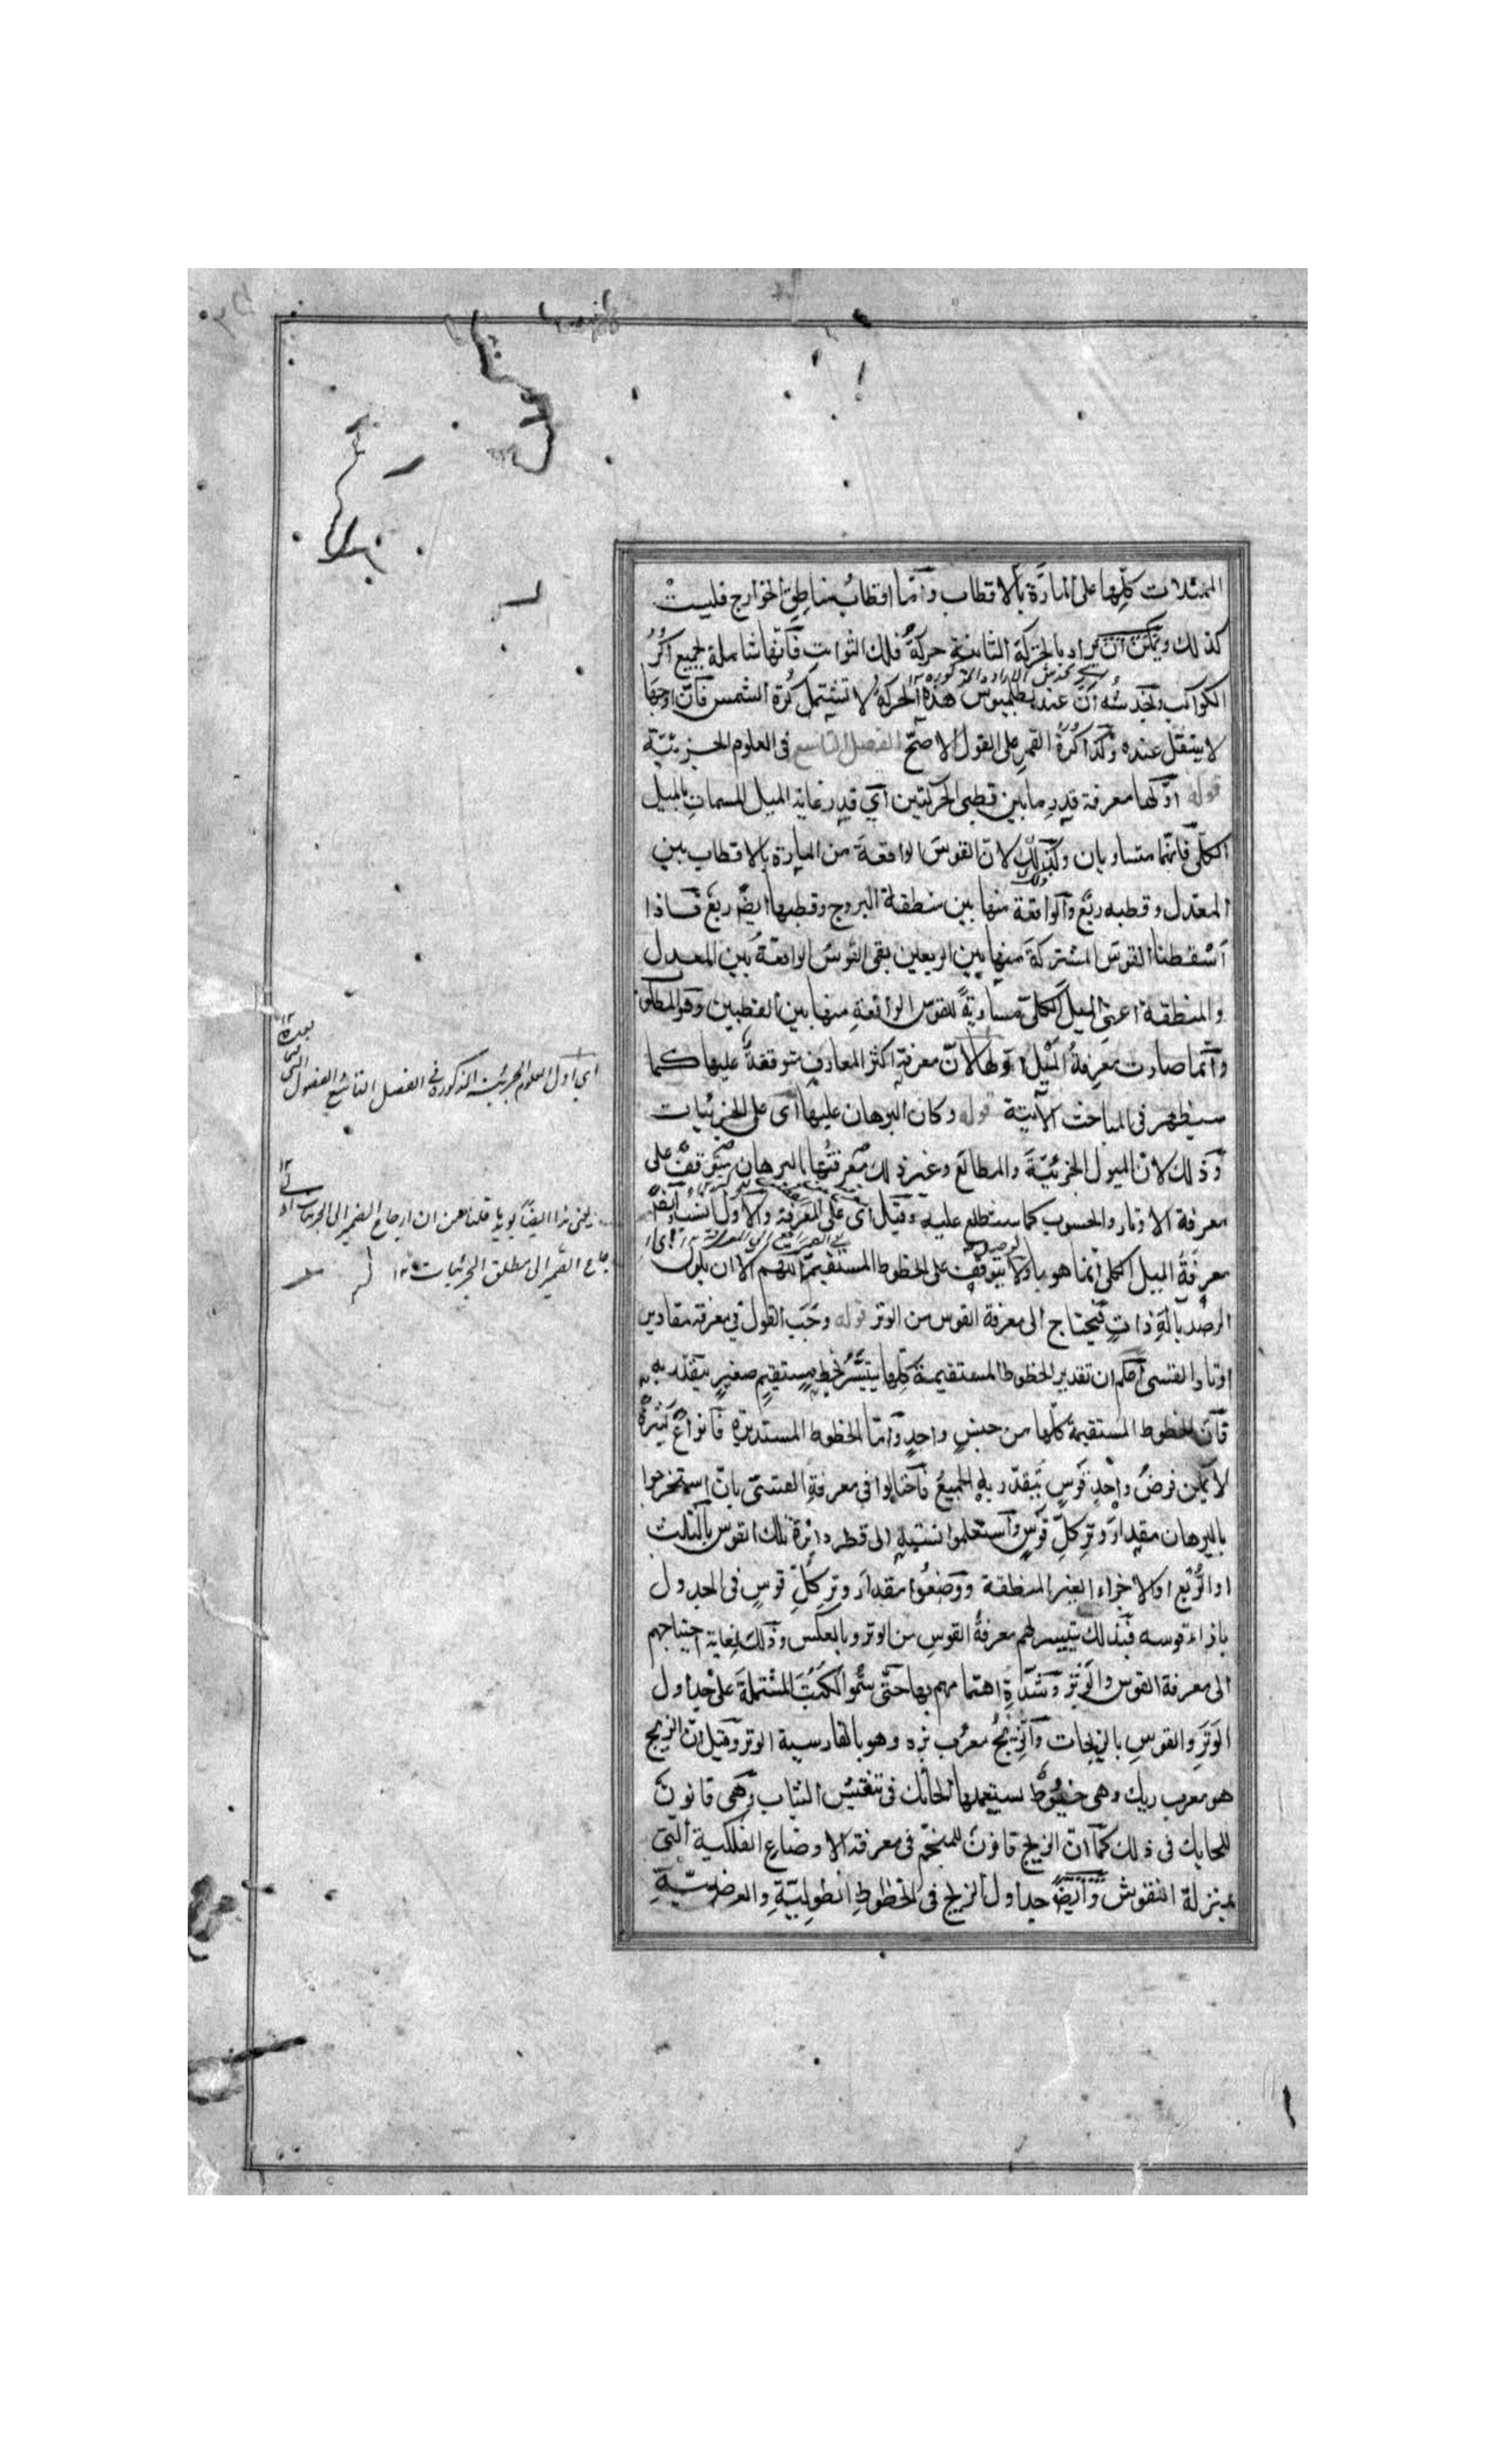 الممثلات كلّها على المارّة بالاقطاب وامّا اقطاب مناطق الخوارج فليست
كذلك ويمكن ان يراد بالحركة الثانية حركة فلك الثوابت فانّها شاملة لجميع اكر
الكواكب ويخدشه أنّ عند بطلميوس هذه الحركة لا تشتمل كرة الشمس فانّ اوجها
لا ينتقل عنده وكذا كرة القمر على القول الاصحّ الفصل التاسع فى العلوم الجزئيّة
قوله اوّلها معرفة قدر ما بين قطبى الحركتين اى قدر غاية الميل المسمات بالميل
الكلّى فانّهما متساويان وذلك لانّ القوس الواقعة من المارة بالاقطاب بين
المعدل وقطبه ربع والواقعة منها بين منطقة البروج وقطبها ايضًا ربع فاذا
اسقطنا القوس المشتركة منهما بين الربعين بقى القوس الواقعة بين المعدل
والمنطقة اعنى الميل الكلّى مساويةً للقوس الواقعة منها بين القطبين وهو المطلوب
وانّما صارت معرفة الميل اوّلها لانّ معرفة اكثر المعارف متوقفة عليها كما
سيظهر فى المباحث الآتية قوله وكان البرهان عليها اى على الجزئيات
وذلك لانّ الميول الجزئيّة والمطالع وغير ذلك معرفتها بالبرهان متوقف على
معرفة الاوتار والحسوب كما ستطلع عليه وقيل اى على المعرفة والاول انسب ايضًا
معرفة الميل الكلى انّما هو بالرصد ولا يتوقف على الخطوط المستقيمة اللهم الا ان يكون
الرصد بآلة ذات فيحتاج الى معرفة القوس من الوتر قوله وجب القول فى معرفة مقادير
اوتار القسى اعلم ان تقدير الخطوط المستقيمة كلّها يتيسّر بخط مستقيم صغير يتقدّر به
فانّ الخطوط المستقيمة كلّها من جنس واحد وامّا الخطوط المستديرة فانواع كثيرة
لا يمكن فرض واحد قوس يتقدّر به الجميع فاحتالوا فى معرفة القسى بانّ استخرجوا
بالبرهان مقدار وتر كلّ قوس واستعلموا نسبته الى قطر دائرة تلك القوس بالثلث
او الرّبع او الاجزاء الغير المنطقة ووضعوا مقدار وتر كلّ قوس فى الجدول
بازاء قوسه فبذلك يتيسر لهم معرفة القوس من الوتر وبالعكس وذلك لغاية احتياجهم
الى معرفة القوس والوتر وشدّة اهتمامهم بها حتّى سمّوا الكتب المشتملة على جداول
الوتر والقوس بالزيجات والزيج معرّب زه وهو بالفارسية الوتر وقيل انّ الزيج
هو معرب ريك وهى خيوط يستعملها الحائك فى تنقيش الثياب وهى قانون
للحايك فى ذلك كما انّ الزيج قانون للمنجّم فى معرفة الاوضاع الفلكية التى
بمنزلة النقوش وايضًا جداول الزيج فى الخطوط الطوليّة والعرضيّة
اى اول العلوم الجزئية المذكورة فى الفصل التاسع الفصول التى
بعده ١٢
يعنى هذا ايضًا يؤيد ما قلنا من ان ارجاع الضمير الى الجزئيات
جاع الضمير الى مطلق الجزئيات ١٢